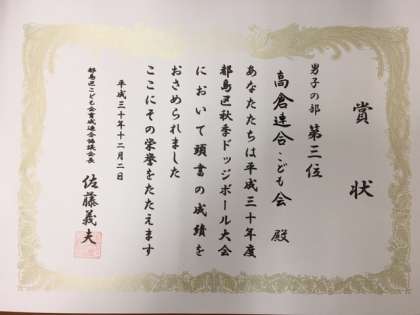 賞状
男子の部 第三位
高倉連合こども会 殿
あなたたちは平成三十年度
都島区秋季ドッジボール大会
において頭書の成績を
おさめられました
ここにその栄誉をたたえます
平成三十年十二月二日
都島区こども会育成連合協議会長
佐藤義夫